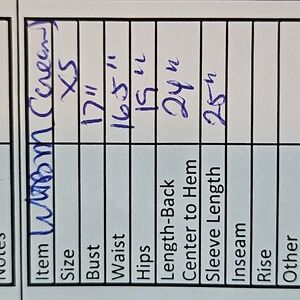 Notes
Item (Cream)
Size XS
Bust 17"
Waist 16.5"
Hips
Length-Back
Center to Hem 24"
Sleeve Length 25"
Inseam
Rise
Other